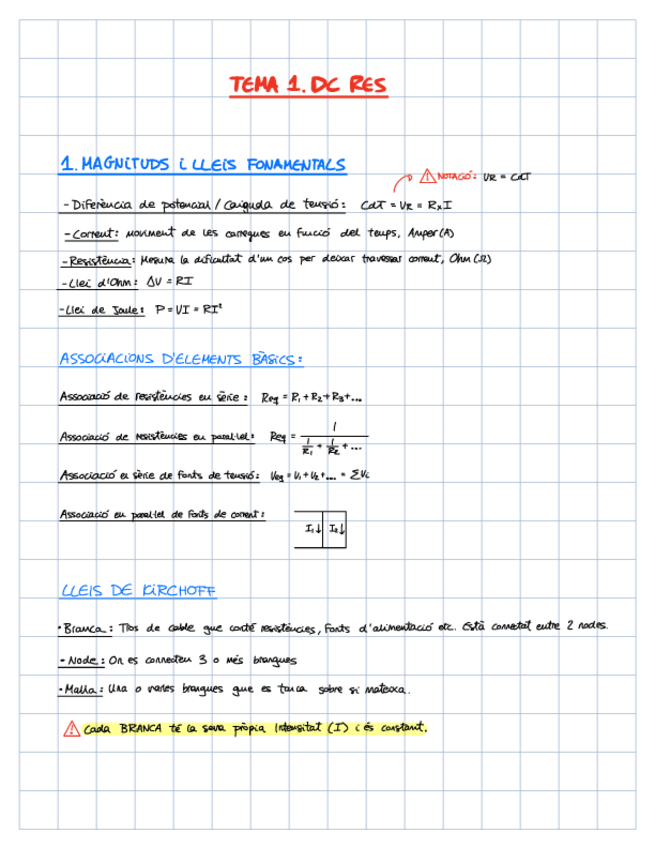 TEMA 1. DC RES
1. MAGNITUDS i LLEIS FONAMENTALS
⚠ NOTACIÓ: VR = CdT
- Diferència de potencial / Caiguda de tensió: CdT = VR = R x I
- Corrent: moviment de les carregues en funció del temps, Amper (A)
- Resistència: Mesura la dificultat d'un cos per deixar travessar corrent, Ohm (Ω)
- Llei d'Ohm: ΔV = RI
- Llei de Joule: P = VI = RI²
ASSOCIACIONS D'ELEMENTS BÀSICS:
Associació de resistències en sèrie: Req = R₁ + R₂ + R₃ + ...
Associació de resistències en paral·lel: Req = 1 / (1/R₁ + 1/R₂ + ...)
Associació en sèrie de fonts de tensió: Veq = V₁ + V₂ + ... = ΣVi
Associació en paral·lel de fonts de corrent:
I₁↓ I₂↓
LLEIS DE KIRCHOFF
· Branca: Tros de cable que conté resistències, fonts d'alimentació etc. Està connectat entre 2 nodes.
- Node: On es connecten 3 o més branques
· Malla: Una o varies branques que es tanca sobre si mateixa.
⚠ Cada BRANCA té la seva pròpia Intensitat (I) i és constant.